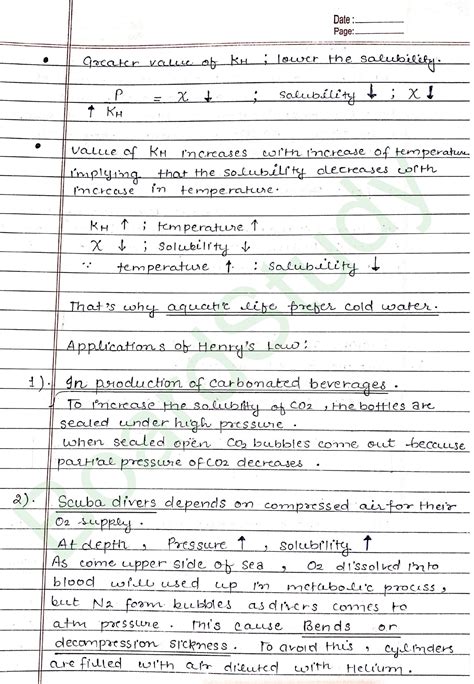 Date :
Page:
• Greater value of KH ; lower the solubility.
P / ↑ KH = x ↓ ; solubility ↓ ; x ↓
• value of KH increases with increase of temperature
implying that the solubility decreases with
increase in temperature.
KH ↑ ; temperature ↑
x ↓ ; solubility ↓
∵ temperature ↑ : solubility ↓
That's why aquatic life prefer cold water.
Applications of Henry's Law:
1). In production of carbonated beverages.
To increase the solubility of CO2, the bottles are
sealed under high pressure.
When sealed open CO2 bubbles come out because
partial pressure of CO2 decreases.
2). Scuba divers depends on compressed air for their
O2 supply.
At depth, Pressure ↑, solubility ↑
As come upper side of sea, O2 dissolved into
blood will used up in metabolic process,
but N2 form bubbles as divers comes to
atm pressure. This cause Bends or
decompression sickness. To avoid this, cylinders
are filled with air diluted with Helium.
BoardStudy